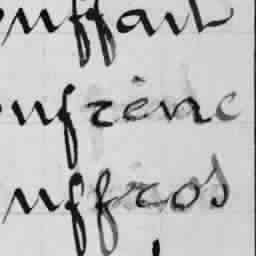 nffait
nfrène
nffros